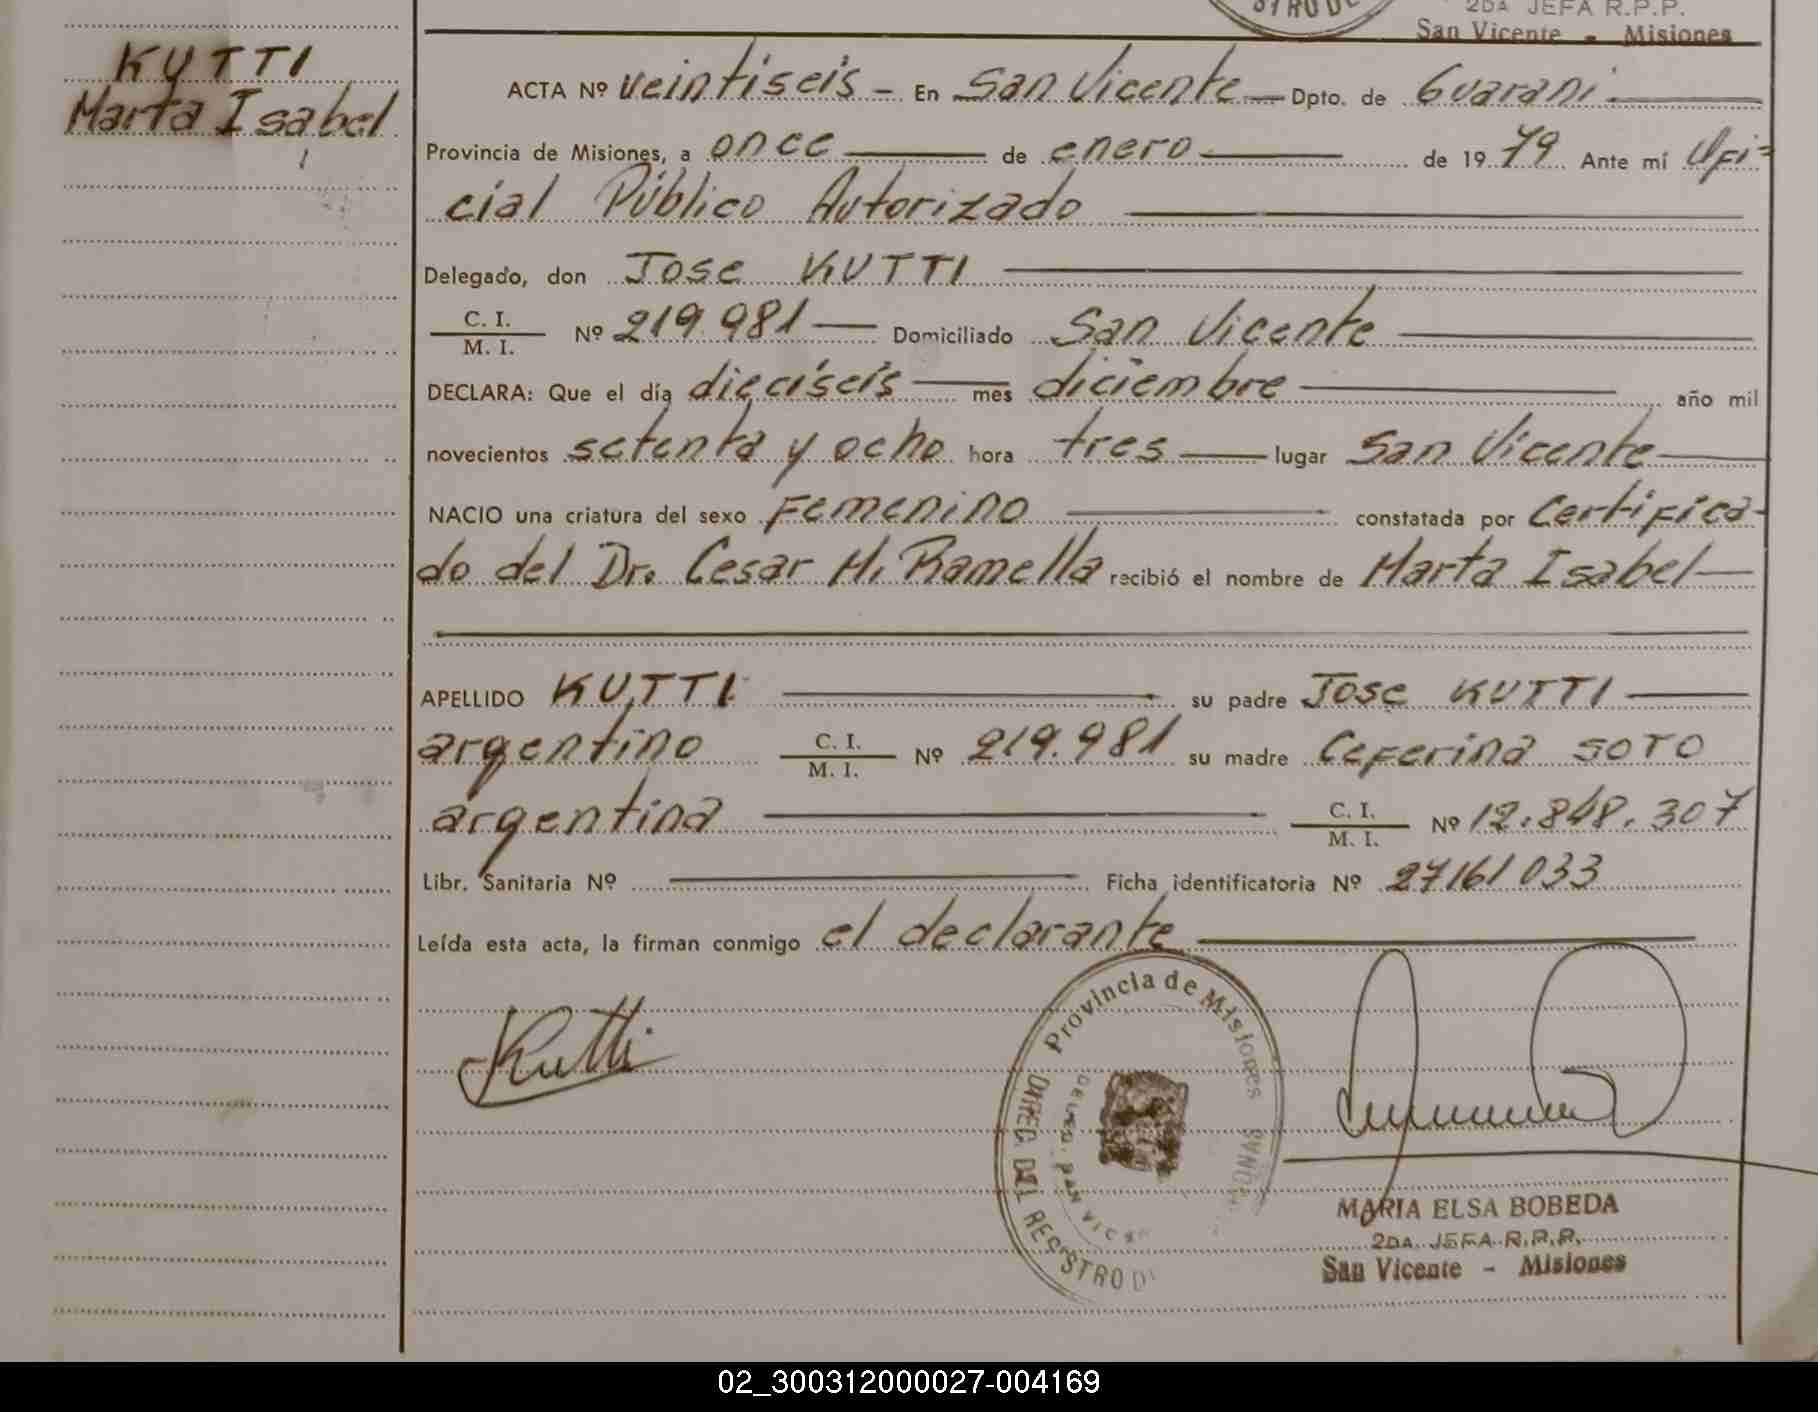 STRO DE
2DA JEFA R.P.P.
San Vicente - Misiones
KUTTI
Marta Isabel
ACTA Nº veintiseis - En San Vicente Dpto. de Guarani
Provincia de Misiones, a once de enero de 1979 Ante mí Ofi=
cial Público Autorizado
Delegado, don Jose KUTTI
C. I.
M. I. Nº 219.981 Domiciliado San Vicente
DECLARA: Que el día dieciséis mes diciembre año mil
novecientos setenta y ocho hora tres lugar San Vicente
NACIO una criatura del sexo Femenino constatada por Certifica-
do del Dr. Cesar H. Ramella recibió el nombre de Marta Isabel
APELLIDO KUTTI su padre Jose KUTTI
argentino C. I.
M. I. Nº 219.981 su madre Ceferina SOTO
argentina C. I.
M. I. Nº 12.848.307
Libr. Sanitaria Nº Ficha identificatoria Nº 27161033
Leída esta acta, la firman conmigo el declarante
Kutti
Provincia de Misiones
DIREC. DEL REGISTRO DE
DELEG. SAN VICEN
MARIA ELSA BOBEDA
2DA. JEFA R.P.P.
San Vicente - Misiones
02_300312000027-004169